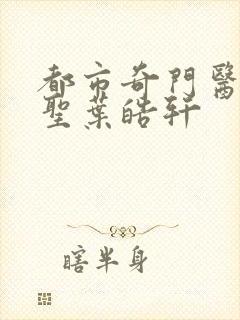 都市奇門醫
聖葉皓軒
瞎半身